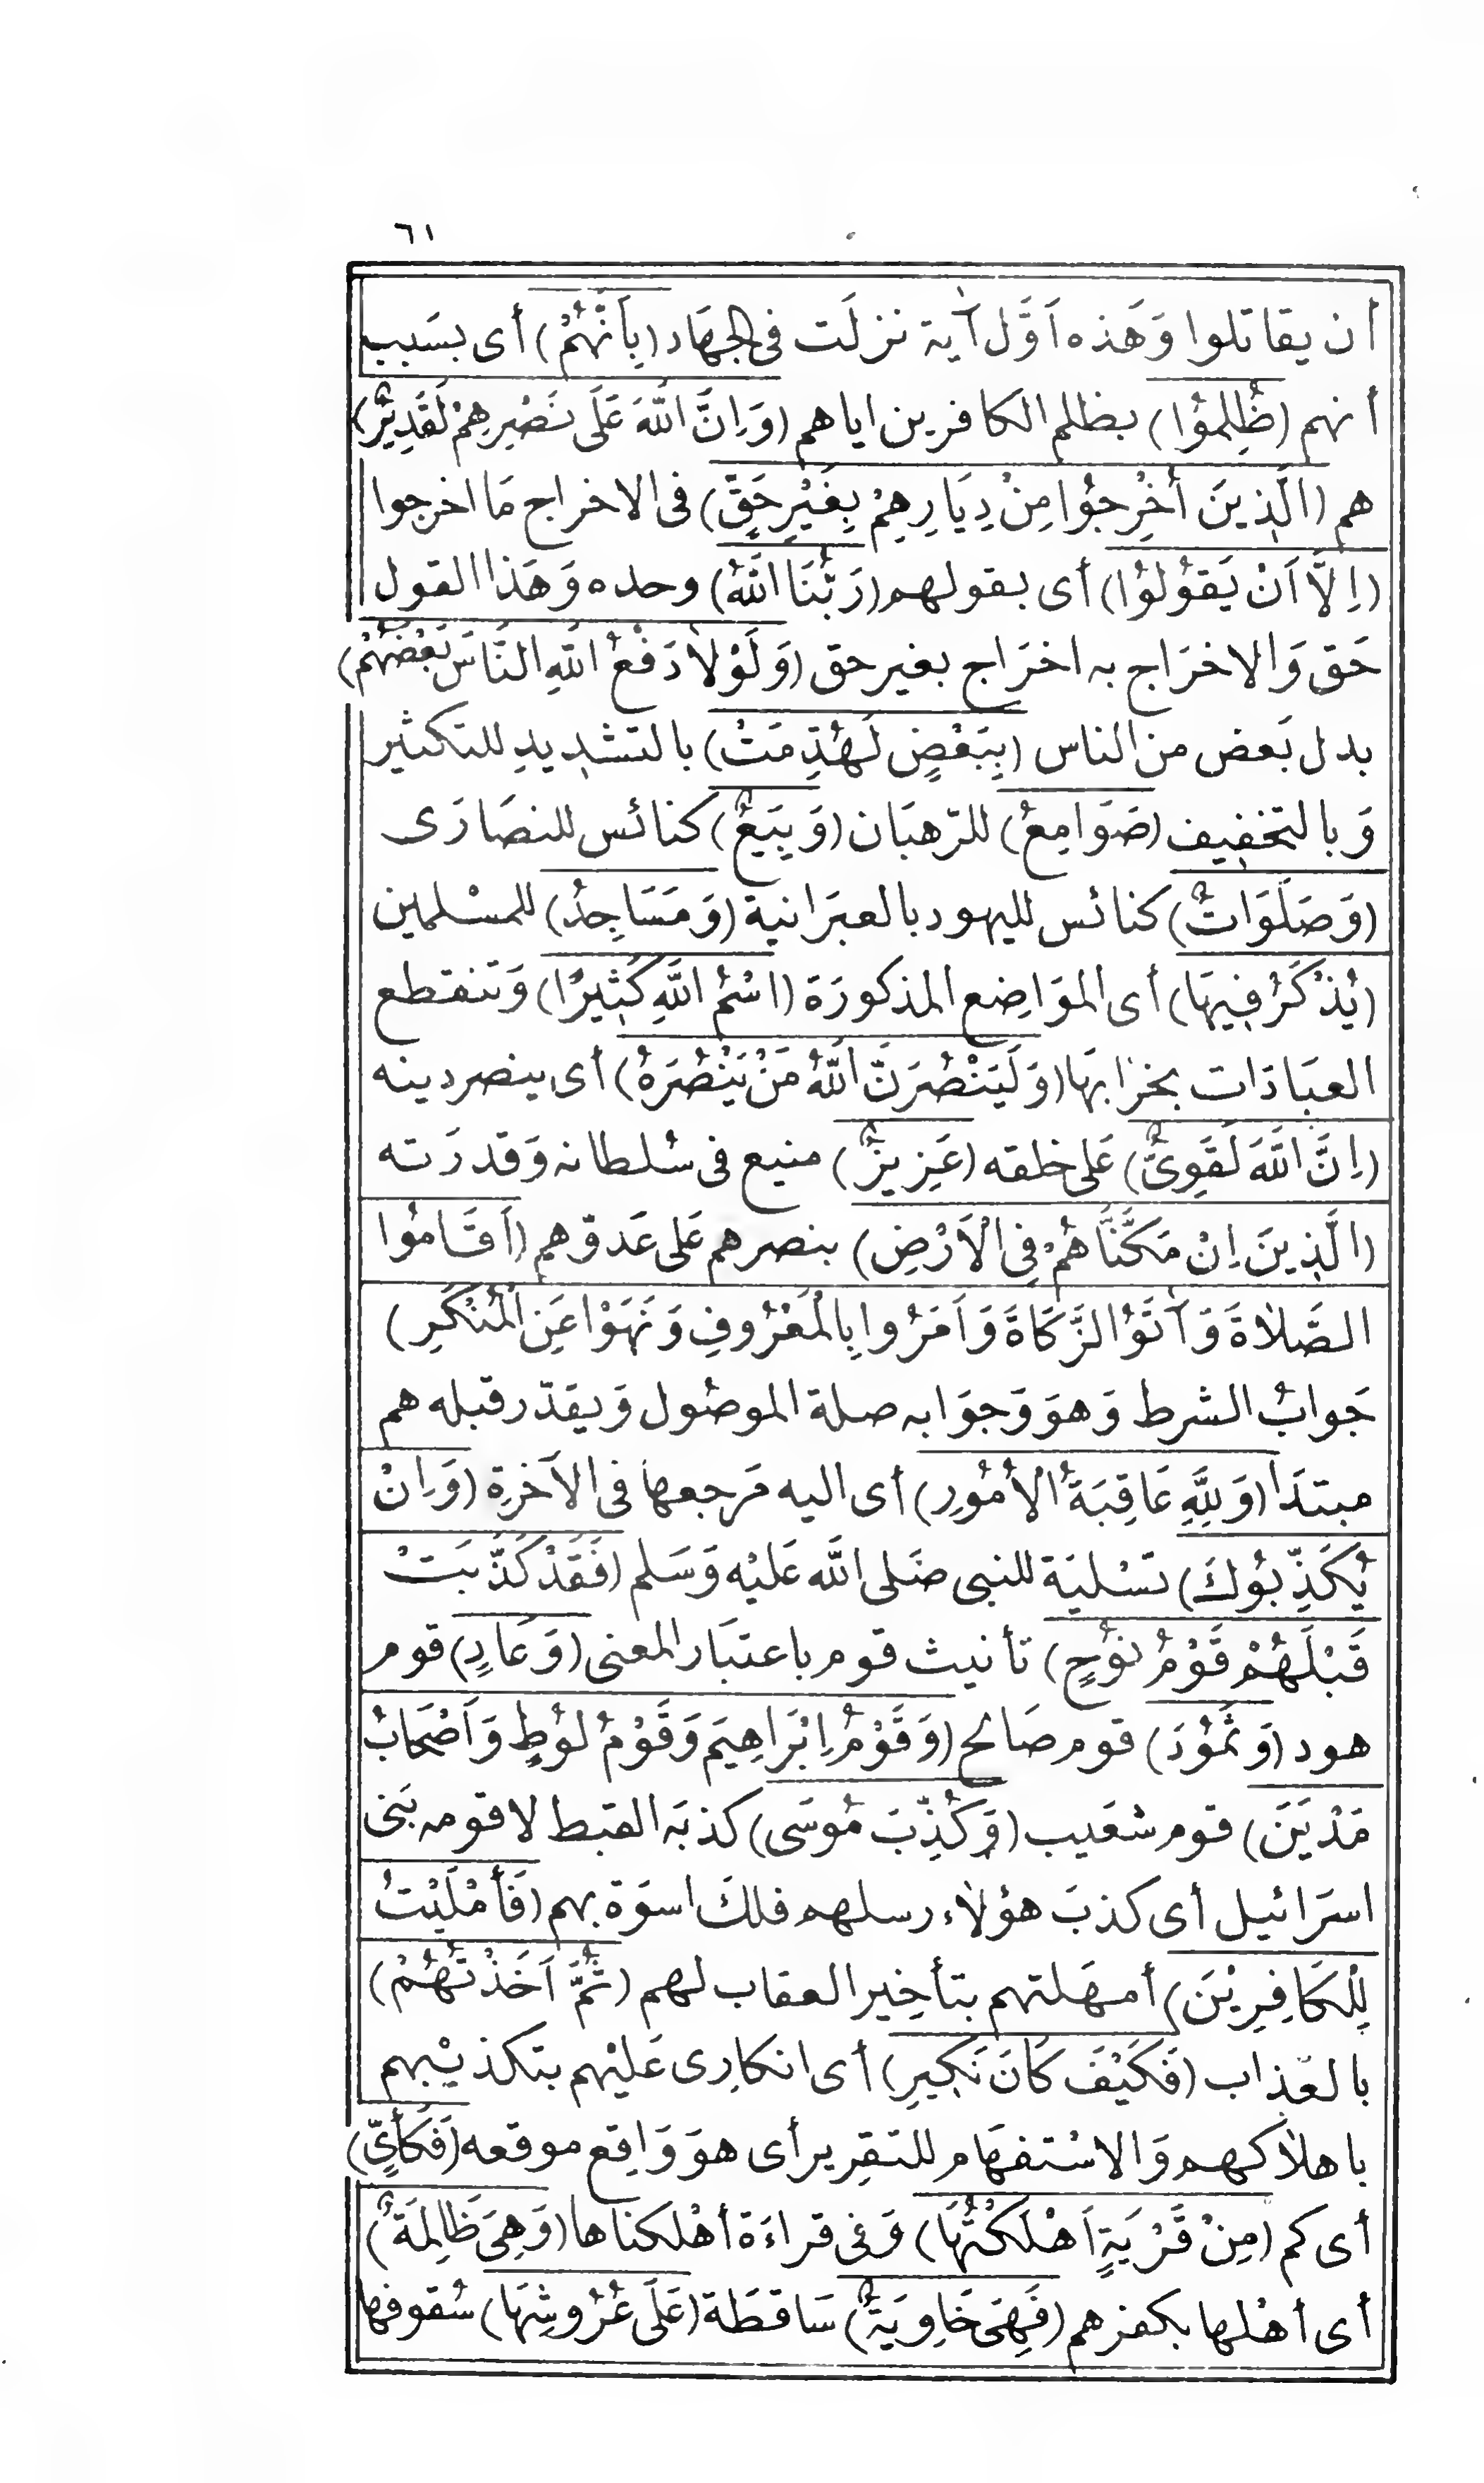 ٦١
أن يقاتلوا وَهَذه اَوَّل آية نزلَت فى الجهَاد (بِاَنَّهُمْ) أى بسَبب
أنهم (ظُلِمُوْا) بظلم الكافرين اياهم (وَاِنَّ اللّٰهَ عَلَى نَصْرِهِمْ لَقَدِيْرٌ)
هم (الَّذِينَ اُخْرِجُوْا مِنْ دِيَارِهِمْ بِغَيْرِ حَقٍّ) فى الاخراج مَا اخرجوا
(اِلَّا اَنْ يَقُوْلُوْا) أى بقولهم (رَبُّنَا اللّٰهُ) وحده وَهَذا القول
حَق وَالاخرَاج به اخرَاج بغير حق (وَلَوْلاَ دَفْعُ اللّٰهِ النَّاسَ بَعْضَهُمْ)
بدل بَعض من الناس (بِبَعْضٍ لَهُدِّمَتْ) بالتشديدِ للتكثير
وَبالتخفيف (صَوَامِعُ) للرّهبَان (وَبِيَعٌ) كنائس للنصَارَى
(وَصَلَوَاتٌ) كنائس لليهود بالعبرَانية (وَمَسَاجِدُ) للمسْلمين
(يُذْكَرُ فِيهَا) أى الموَاضِع المذكورَة (اسْمُ اللّٰهِ كَثِيرًا) وَتنقطع
العبَادَات بخرَابهَا (وَلَيَنْصُرَنَّ اللّٰهُ مَنْ يَنْصُرَهُ) أى ينصر دينه
(اِنَّ اللّٰهَ لَقَوِىٌّ) عَلى خلقه (عَزِيزٌ) منيع فى سُلطانه وَقدرَته
(الَّذِينَ اِنْ مَكَّنَّاهُمْ فِى الْاَرْضِ) بنصرهم عَلى عَدوّهم (اَقَامُوا
الصَّلاٰةَ وَآتَوُا الزَّكَاةَ وَاَمَرُوا بِالْمَعْرُوفِ وَنَهَوْا عَنِ الْمُنْكَرِ)
جَوابُ الشرط وَهوَ وَجوَابه صلة الموصُول وَيقدّر قبله هم
مبتدَا (وَلِلّٰهِ عَاقِبَةُ الْاُمُوْرِ) أى اليه مَرجعها فى الآخرة (وَاِنْ
يُكَذِّبُوكَ) تسْليَة للنبى صَلى اللّٰه عَليْه وَسَلم (فَقَدْ كَذَّبَتْ
قَبْلَهُمْ قَوْمُ نوُحٍ) تأنيث قوم باعتبَار المعنى (وَعَادٍ) قوم
هود (وَثَمُوْدَ) قوم صَالح (وَقَوْمُ اِبْرَاهِيمَ وَقَوْمُ لوُطٍ وَاَصْحَابُ
مَدْيَنَ) قوم شعَيب (وَكُذِّبَ مُوسَى) كذبَه القبط لا قومه بَنى
اسرَائيل أى كذبَ هؤلاٰء رسلهم فلكَ اسوَة بهم (فَأَمْلَيْتُ
لِلْكَافِرِيْنَ) أمهَلتهم بتأخِير العقاب لهم (ثُمَّ اَخَذْتُهُمْ)
بالعَذاب (فَكَيْفَ كَانَ نَكِيرِ) أى انكارِى عَليْهم بتكذيْبهم
باهلاٰكهم وَالاسْتفهَام للتقرِير أى هوَ وَاقِع موقعه (فَكَأَيِّ)
أى كم (مِنْ قَرْيَةٍ اَهْلَكْتُهَا) وَفى قراءَة أهْلكناها (وَهِىَ ظَالِمَةٌ)
أى أهْلها بكفرهم (فَهِىَ خَاوِيَةٌ) سَاقطَة (عَلَى عُرُوشِهَا) سُقوفها